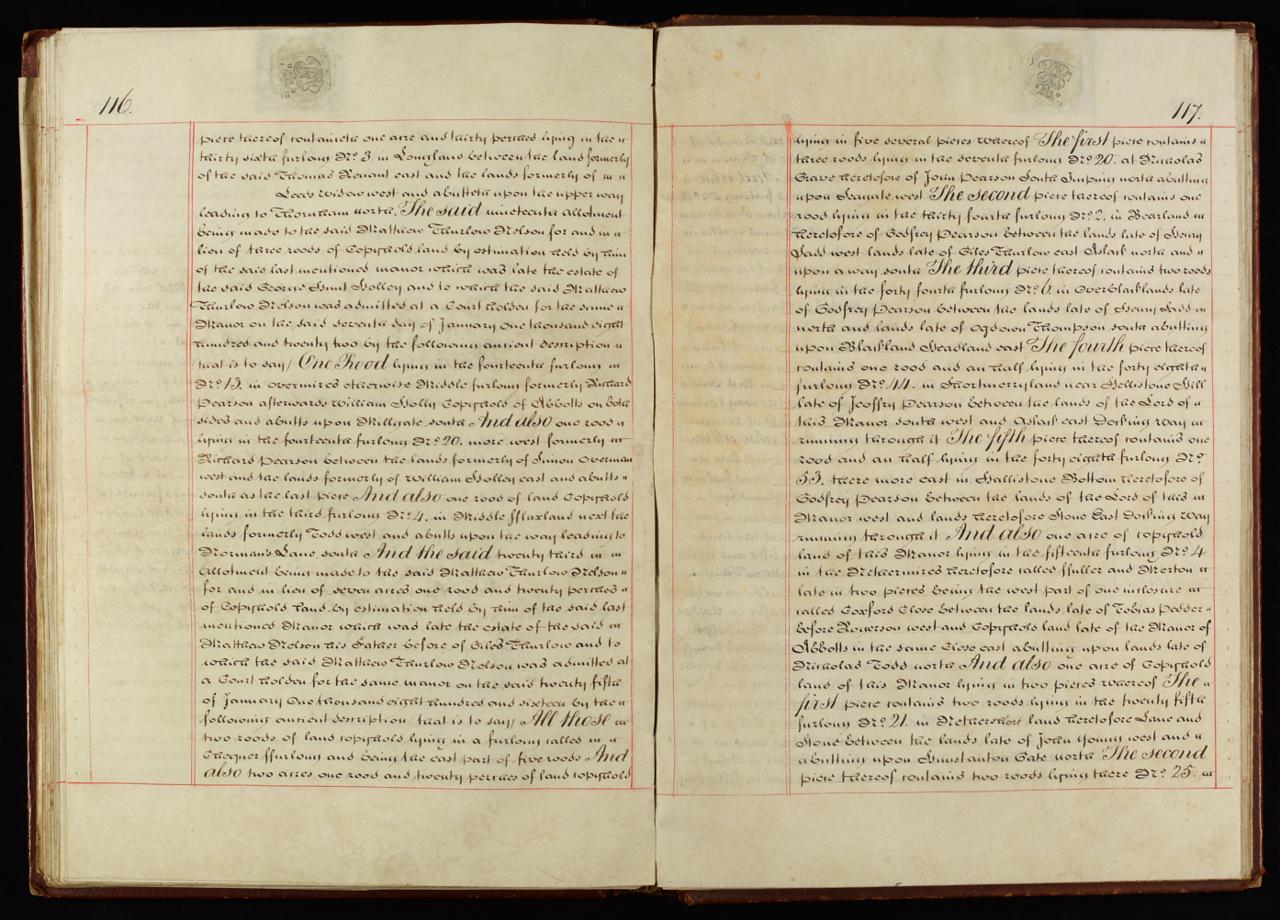 116.
piece thereof containeth one acre and thirty perches lying in the
thirty sixth furlong No. 3. in Longlans between the land formerly
of the said Thomas Rouant east and the lands formerly of
Leeds Widow west and abutteth upon the upper way
leading to Thornham north. The said nineteenth allotment
being made to the said Matthew Thurlow Nelson for and in
lieu of three roods of Copyhold land by estimation held by him
of the said last mentioned manor which was late the estate of
the said George Hunt Holley and to which the said Matthew
Thurlow Nelson was admitted at a Court holden for the same
Manor on the said seventh day of January One thousand eight
hundred and twenty two by the following ancient description
that is to say/ One Rood lying in the fourteenth furlong
No. 15. in overmires otherwise Middle furlong formerly Richard
Pearson afterwards William Holly Copyhold of Abbotts on both
sides and abutts upon Millgate south And also one rood
lying in the fourteenth furlong No. 20. more west formerly
Richard Pearson between the lands formerly of Simon Overman
west and the lands formerly of William Holley east and abutts
south as the last piece And also one rood of land Copyhold
lying in the third furlong No. 4. in Middle fflaxland next the
lands formerly Todd west and abutts upon the way leading to
Norman's Lane south And the said twenty third
Allotment being made to the said Matthew Thurlow Nelson
for and in lieu of seven acres one rood and twenty perches
of Copyhold land by estimation held by him of the said last
mentioned Manor which was late the estate of the said
Matthew Nelson his Father before of Giles Thurlow and to
which the said Matthew Thurlow Nelson was admitted at
a Court holden for the same manor on the said twenty fifth
of January One thousand eight hundred and sixteen by the
following ancient description (that is to say) All those
two roods of land copyhold lying in a furlong called
Chequer ffurlong and being the east part of five roods And
also two acres one rood and twenty perches of land copyhold
117.
lying in five several pieces whereof The first piece contains
three roods lying in the seventh furlong No. 20. at Nicholas
Grave heretofore of John Pearson South Imping north abutting
upon Seagate west The second piece thereof contains one
rood lying in the thirty fourth furlong No. 2. in Bearland
heretofore of Godfrey Pearson between the lands late of Henry
Sadd west lands late of Giles Thurlow east Aslack north and
upon a way south The third piece thereof contains two roods
lying in the forty fourth furlong No. 6. in Overblacklands late
of Godfrey Pearson between the lands late of Henry Sadd
north and lands late of Ogdown Thompson south abutting
upon Blackland Headland east The fourth piece thereof
contains one rood and an half lying in the forty eighth
furlong No. 44. in Shortmerryland near Hellistone Hill
late of Jeoffry Pearson between the lands of the Lord of
this Manor south west and Aslack east Docking Way
running through it The fifth piece thereof contains one
rood and an half lying in the forty eighth furlong No.
53. there more east in Hallistone Bottom heretofore of
Godfrey Pearson between the lands of the Lord of this
Manor west and lands heretofore Stone East Docking Way
running through it And also one acre of copyhold
land of this Manor lying in the fifteenth furlong No. 4
in the Nethermires heretofore called ffuller and Merton
late in two pieces being the west part of one inclosure
called Coxford Close between the lands late of Tobias Pedder
before Rogerson west and Copyhold land late of the Manor of
Abbotts in the same Close east abutting upon lands late of
Nicholas Todd north And also one acre of Copyhold
land of this Manor lying in two pieces whereof The
first piece contains two roods lying in the twenty fifth
furlong No. 21. in Nethershort land heretofore Lane and
Stone between the lands late of John Young west and
abutting upon Hunstanton Gate north The second
piece thereof contains two roods lying there No. 25.